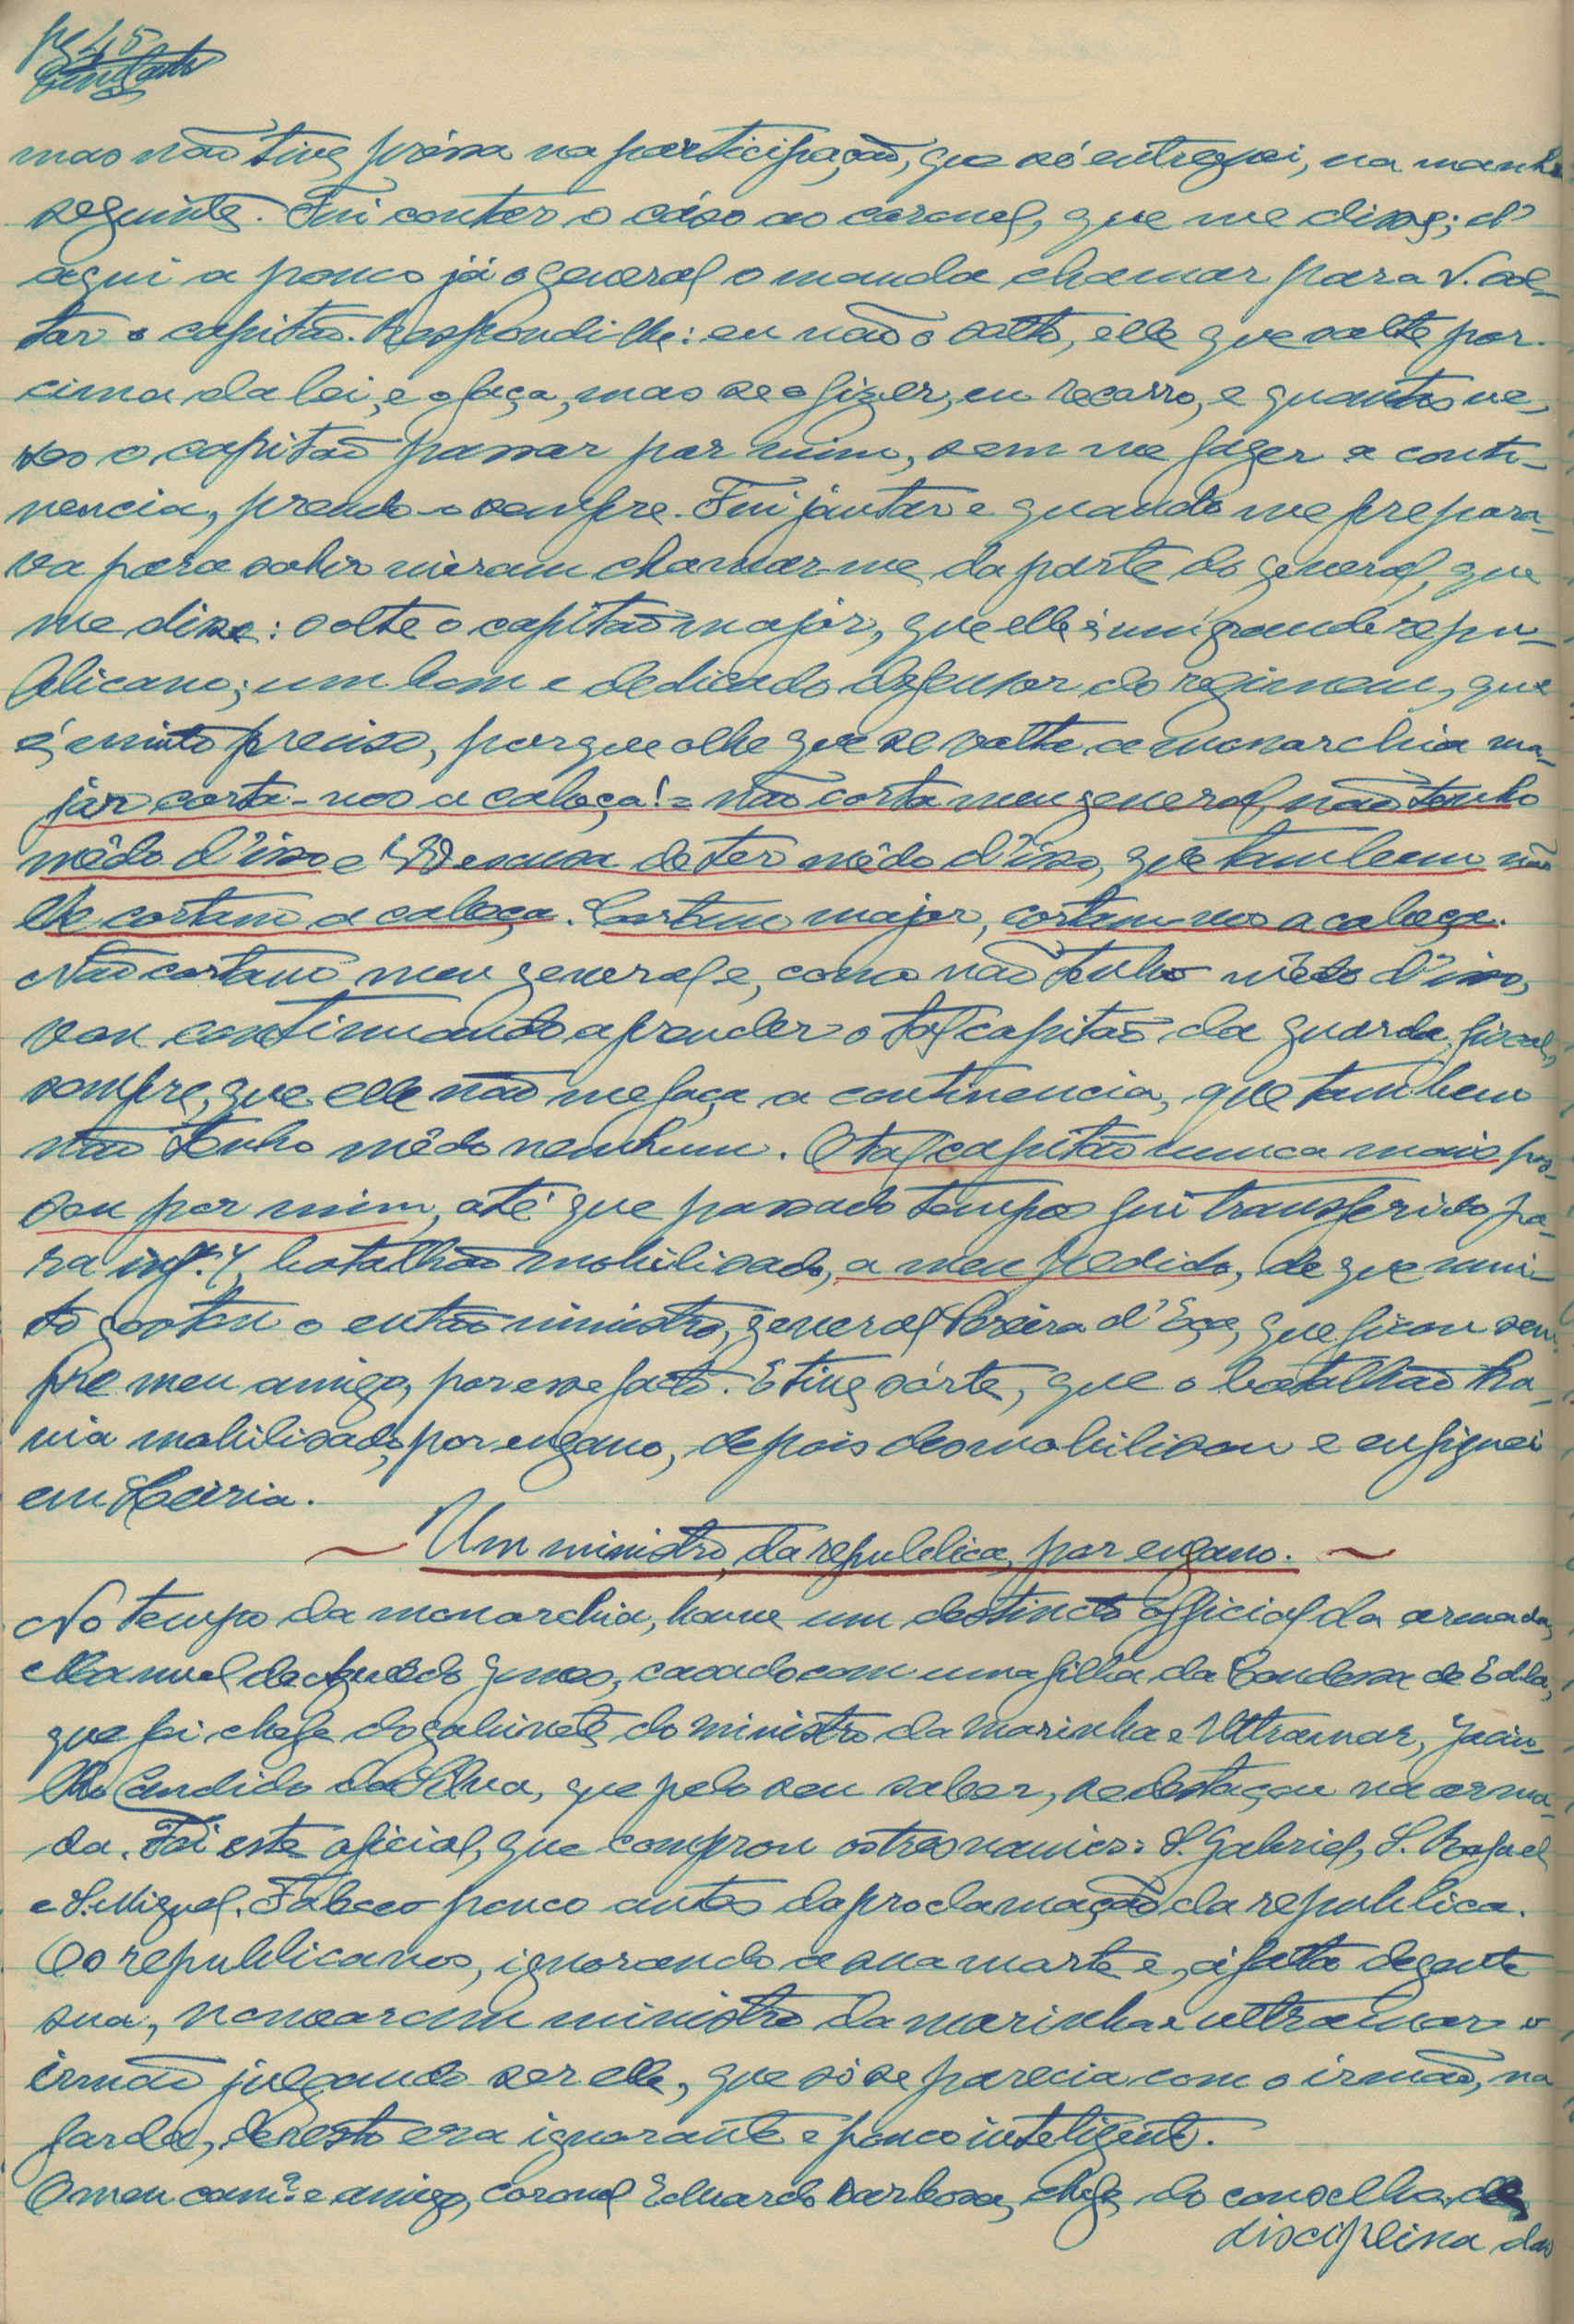 pg 45
mas não tive préssa na participação, que só entreguei, na manhã
seguinte. Fui contar o cáso ao coronel, que me disse; d'
aqui a pouco já o general o manda chamar para V. sol-
tar o capitão. Respondi lhe: eu não o solto, elle que salte por
cima da lei, e o faça, mas se o fizer, eu recorro, e quantas ve-
zes o capitão passar por mim, sem me fazer a conti-
nencia, prendo-o sempre. Fui jantar e quando me prepara-
va para sahir vieram chamar-me da parte do general, que
me disse: solte o capitão major, que elle é um grande repu-
blicano; um bom e dedicado defensor do regimem, que
é muito preciso, porque olhe que se volta a monarchia ma-
jor corta-nos a cabeça! = não corta meu general, não tenho
mêdo d'isso e V. Ex escusa de ter mêdo d'isso, que tambem não
lhe cortam a cabeça. Cortam major, cortam-nos a cabeça.
Não cortam meu general e, como não tenho mêdo d'isso,
vou continuando a prender o tal capitão da guarda fiscal,
sempre, que elle não me faça a continencia, que tambem
não tenho mêdo nenhum. O tal capitão nunca mais pas-
sou por mim, até que passado tempo fui transferido pa-
ra inf.ª 7, batalhão mobilisado, a meu pedido, de que mui-
to gostou o então ministro, general Pereira d'Eça, que ficou sem-
pre meu amigo, por esse facto. E tive sórte, que o batalhão ha-
via mobilisado, por engano, depois desmobilisou e eu fiquei
em Leiria.
Um ministro, da republica, por engano.
No tempo da monarchia, houve um destincto official da armada,
Manuel de Azevedo Gomes, casado com uma filha da Condessa de Edla,
que foi chefe do gabinete do ministro da marinha e Ultramar, Jacin-
tho Candido da Silva, que pelo seu saber, se destaçou na arma-
da. Foi este oficial, que comprou os tres navios: S. Gabriel, S. Rafael
e S. Miguel. Faleceo pouco antes da proclamação da republica.
Os republicanos, ignorando a sua morte e, á falta de gente
sua, nomearam ministro da marinha e ultramar o
irmão julgando ser elle, que só se parecia com o irmão, na
farda, de resto era ignorante e pouco inteligente.
O meu cam.ª e amigo, coronel Eduardo Barbosa, chefe do conselho de
disciplina da